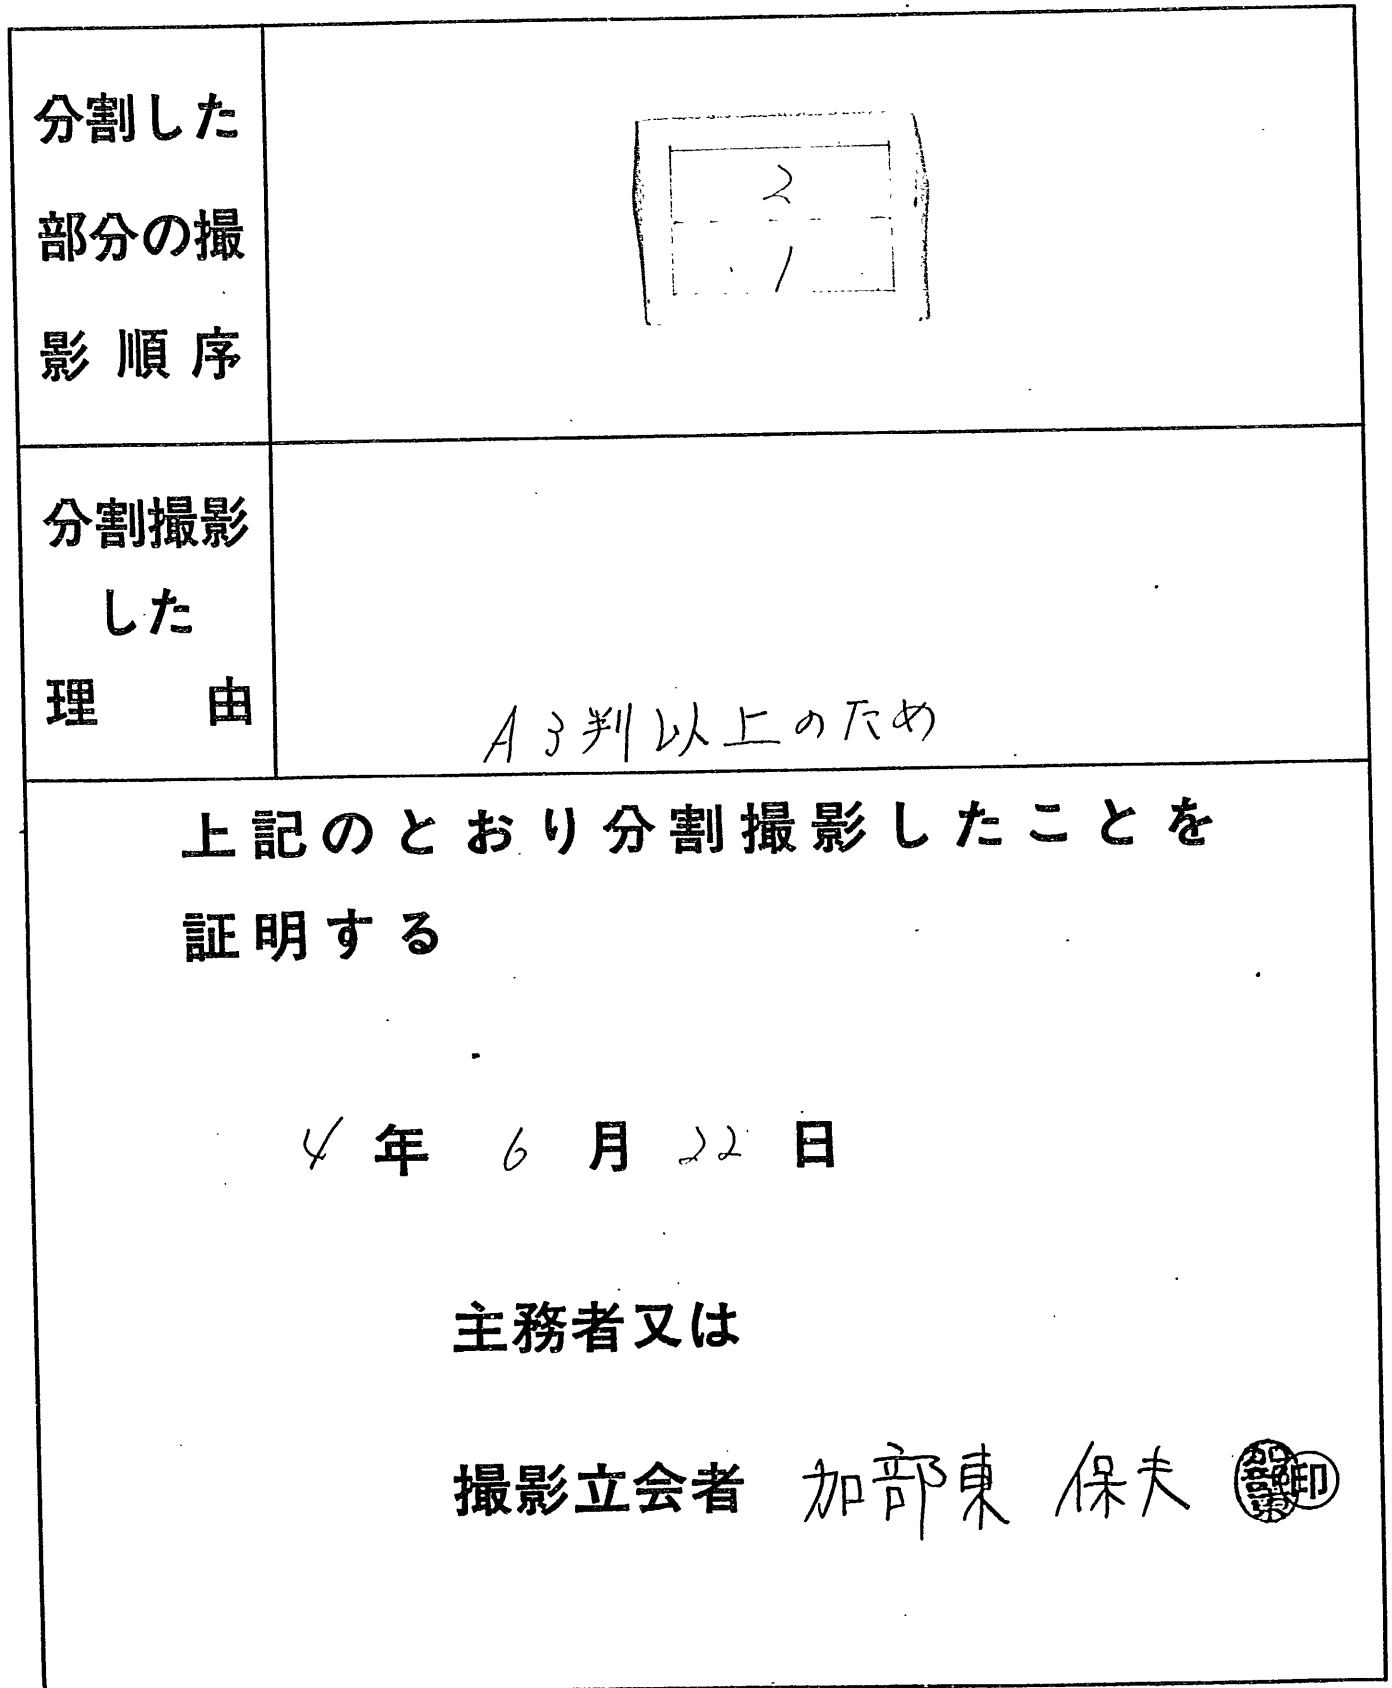 分割した
部分の撮
影順序
2
1
分割撮影
した
理由
A3判以上のため
上記のとおり分割撮影したことを
証明する
4年6月22日
主務者又は
撮影立会者 加部東 保夫 印
加部東